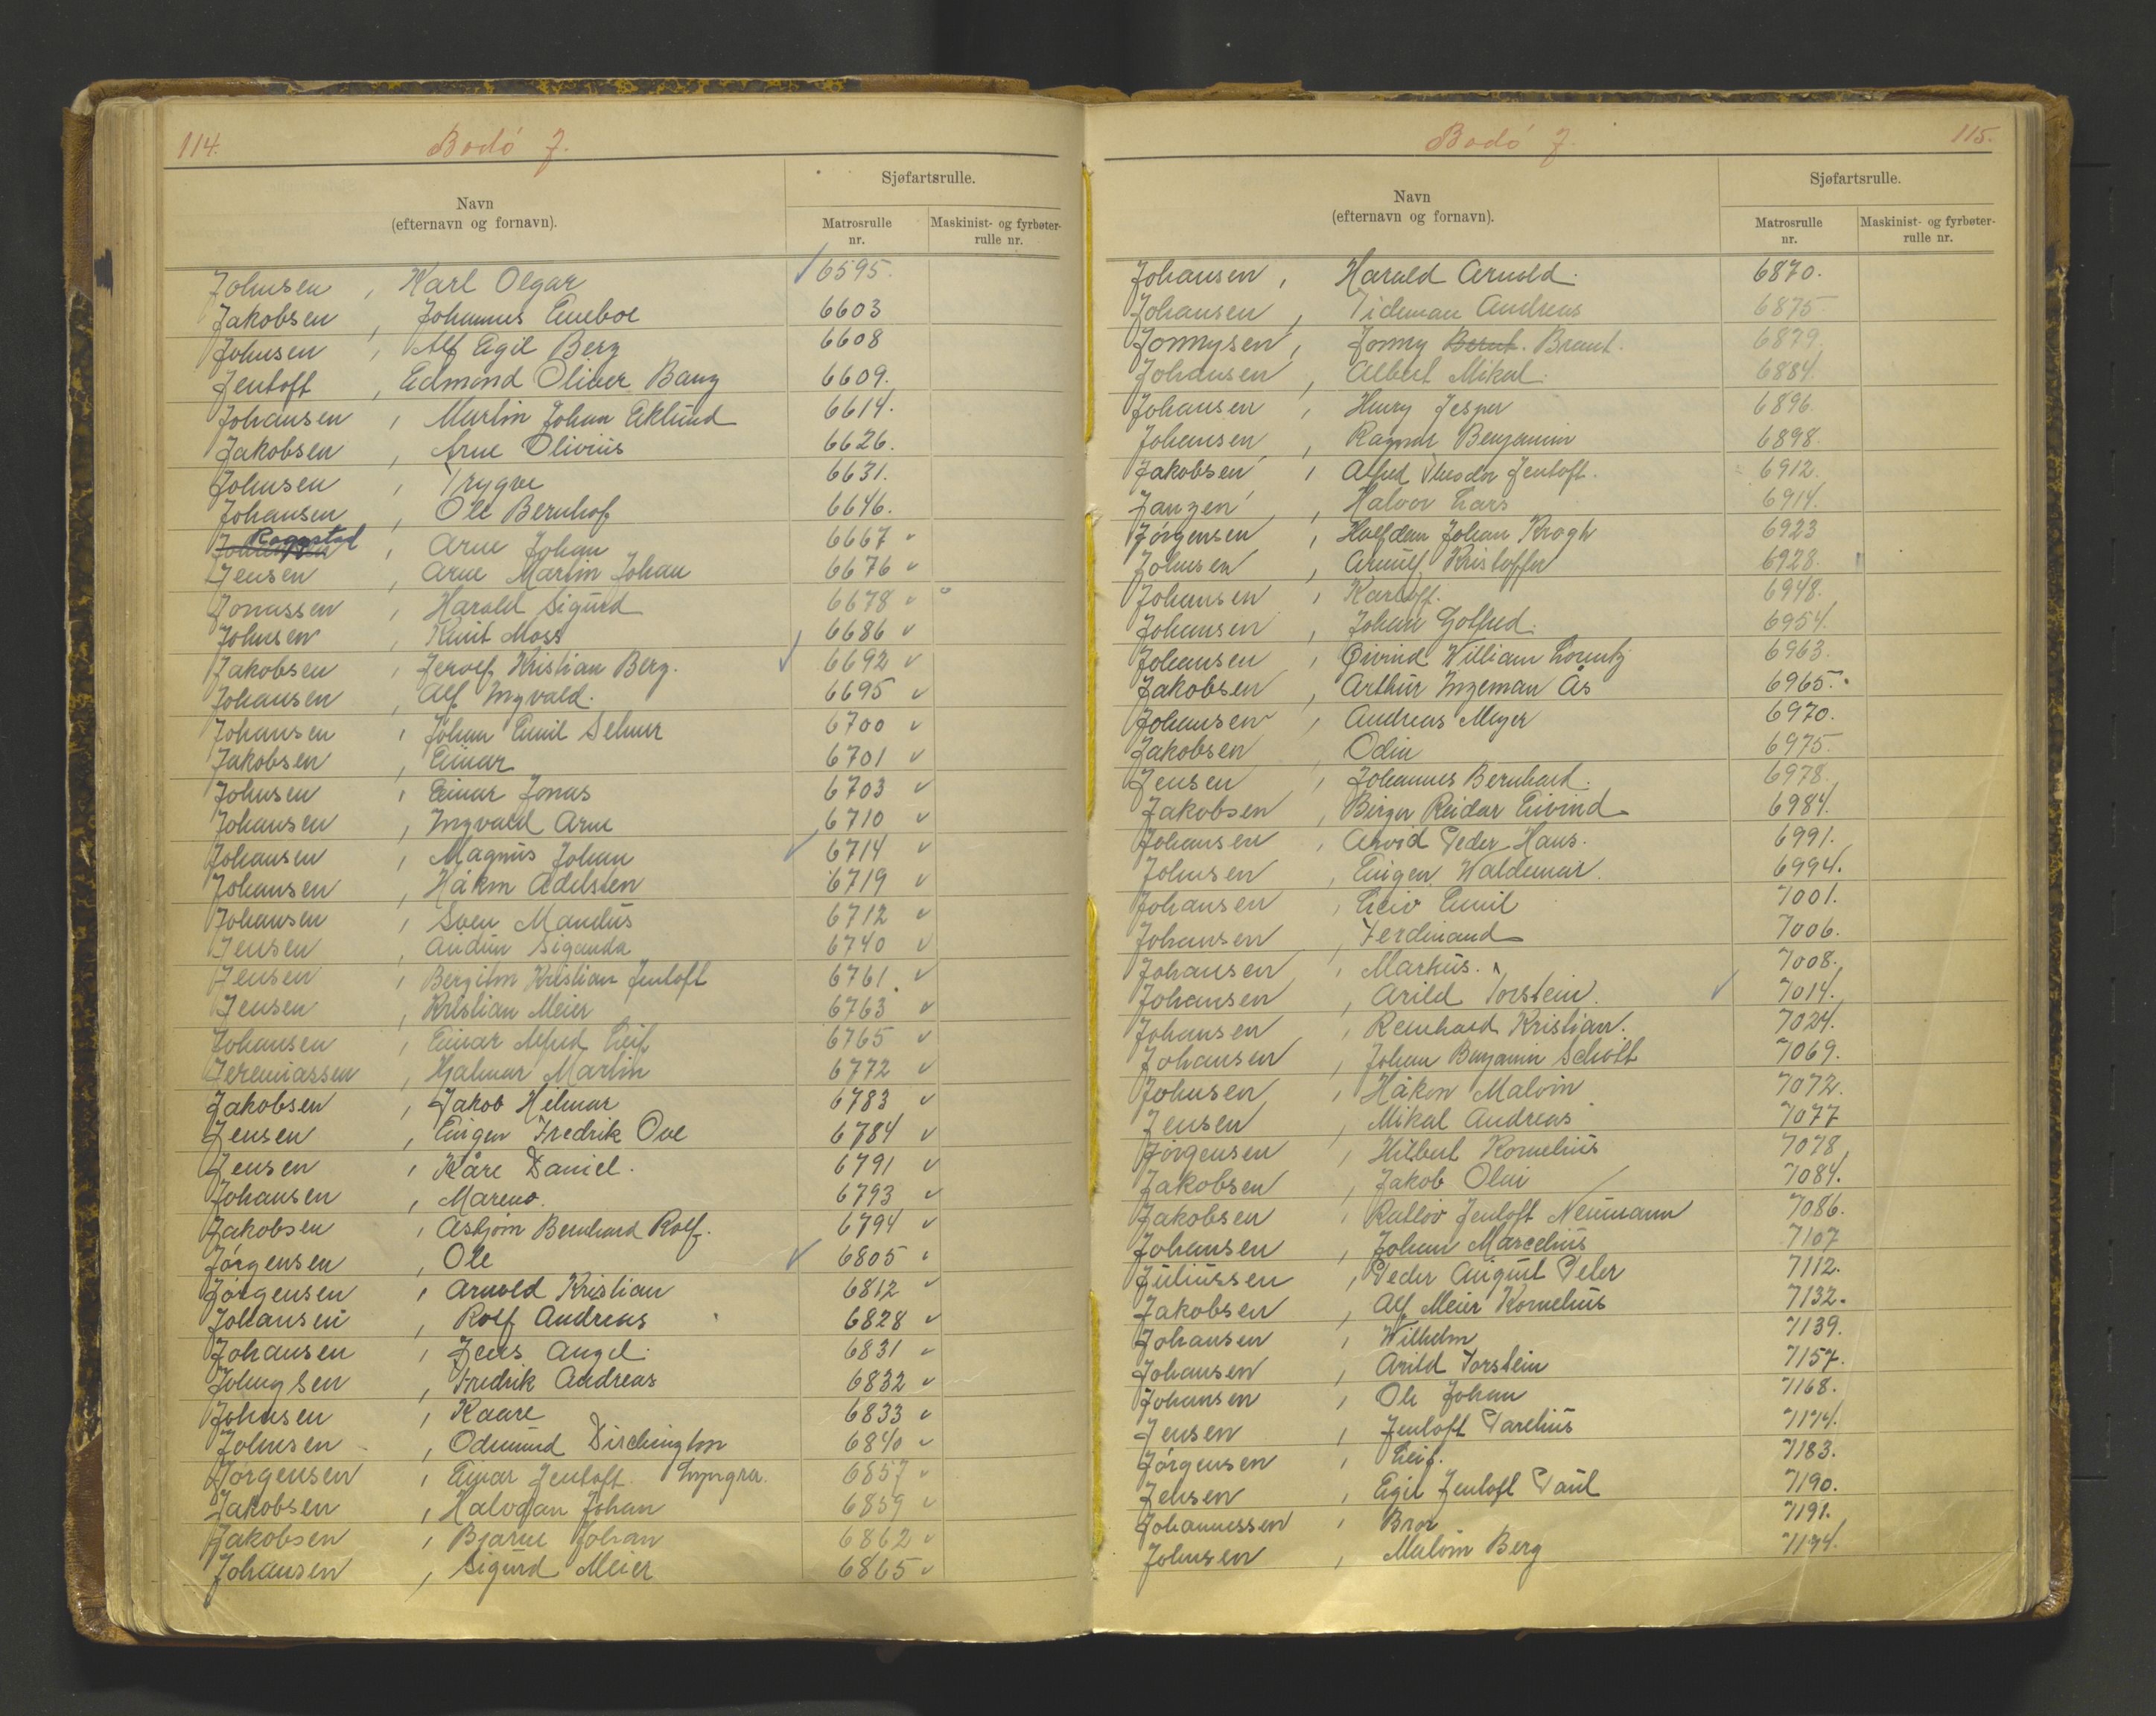 114.
Bodó J.
Navn
(efternavn og fornavn).
Sjøfartsrulle.
Matrosrulle
nr.
Maskinist- og fyrbøter-
rulle nr.
Johnsen, Karl Olgar 6595.
Jakobsen, Johannes Eneboe 6603
Johnsen, Alf Egil Berg 6608
Jentoft, Edmond Oliver Bang 6609.
Johansen, Martin Johan Eklund 6614.
Jakobsen, Arne Olivius 6626.
Johnsen, Trygve 6631.
Johansen, Ole Bernhof 6646.
Rognstad, Arne Johan 6667
Jensen, Arne Martin Johan 6676
Jonassen, Harald Sigurd 6678
Johnsen, Knut Moss 6686
Jakobsen, Jerolf Kristian Berg. 6692
Johansen, Alf Ingvald. 6695
Johansen, Johan Emil Selmer 6700
Jakobsen, Einar 6701
Johnsen, Einar Jonas 6703
Johansen, Ingvald Arne 6710
Johansen, Magnus Johan 6714
Johansen, Håkon Adelsten 6719
Johansen, Sven Mandius 6712
Jensen, Audun Sigauda 6740
Jensen, Bergiton Kristian Jentoft 6761
Jensen, Kristian Meier 6763
Johansen, Einar Alfred Leif 6765
Jeremiassen, Hjalmar Martin 6772
Jakobsen, Jakob Hilmar 6783
Jensen, Eugen Fredrik Ove 6784
Jensen, Kåre Daniel. 6791
Johansen, Mareno. 6793
Jakobsen, Asbjørn Bernhard Rolf. 6794
Jórgensen, Ole 6805
Jórgensen, Arnold Kristian 6812
Johansen, Rolf Andreas 6828
Johansen, Jens Angel. 6831
Johnysen, Fredrik Andreas 6832
Johnsen, Kaare 6833
Johnsen, Odmund Dirchington 6840
Jórgensen, Einar Jentoft Lyngra. 6857
Jakobsen, Halvdan Johan 6859
Jakobsen, Bjarne Johan 6862
Johansen, Sigurd Meier 6865
Bodó J.
115.
Navn
(efternavn og fornavn).
Sjøfartsrulle.
Matrosrulle
nr.
Maskinist- og fyrbøter-
rulle nr.
Johansen, Harald Arnold. 6870.
Johansen, Tideman Andreas 6875
Jonnysen, Jonny Bernt. Brant. 6879.
Johansen, Albert Mikal. 6884.
Johansen, Henry Jesper 6896.
Johansen, Ragnar Benjamin 6898.
Jakobsen, Alfred Theodor Jentoft. 6912.
Janzen, Halvor Lars 6914.
Jørgensen, Halfdan Johan Krogh 6923
Johnsen, Arnulf Kristoffer 6928.
Johansen, Karloff. 6948.
Johansen, Johan Golfred. 6954.
Johansen, Øivind William Lorentz 6963.
Jakobsen, Arthur Ingeman Ås 6965.
Johansen, Andreas Meyer 6970.
Jakobsen, Odin 6975.
Jensen, Johannes Bernhard. 6978.
Jakobsen, Birger Reidar Eivind 6984.
Johansen, Arvid Peder Hans. 6991.
Johnsen, Eugen Waldemar. 6994.
Johansen, Leiv Emil 7001.
Johansen, Ferdinand 7006.
Johansen, Markus. 7008.
Johansen, Arild Torstein. 7014.
Johansen, Reinhard Kristian. 7024.
Johansen, Johan Benjamin Schølt 7069.
Johnsen, Håkon Malvin 7072.
Jensen, Mikal Andreas 7077
Jørgensen, Hilbert Kornelius 7078
Jakobsen, Jakob Olai 7084.
Jakobsen, Ratlov Jentoft Neumann 7086.
Johansen, Johan Marcelius 7107
Juliussen, Peder August Peter 7112.
Jakobsen, Alf Meier Kornelius 7132.
Johansen, Wilhelm 7139.
Johansen, Arild Torstein 7157.
Johansen, Ole Johan 7168.
Jensen, Jentoft Parelius 7174.
Jórgensen, Leif. 7183.
Jensen, Egil Jentoft Paul 7190.
Johannessen, Bror 7191.
Johnsen, Malvin Berg 7194.